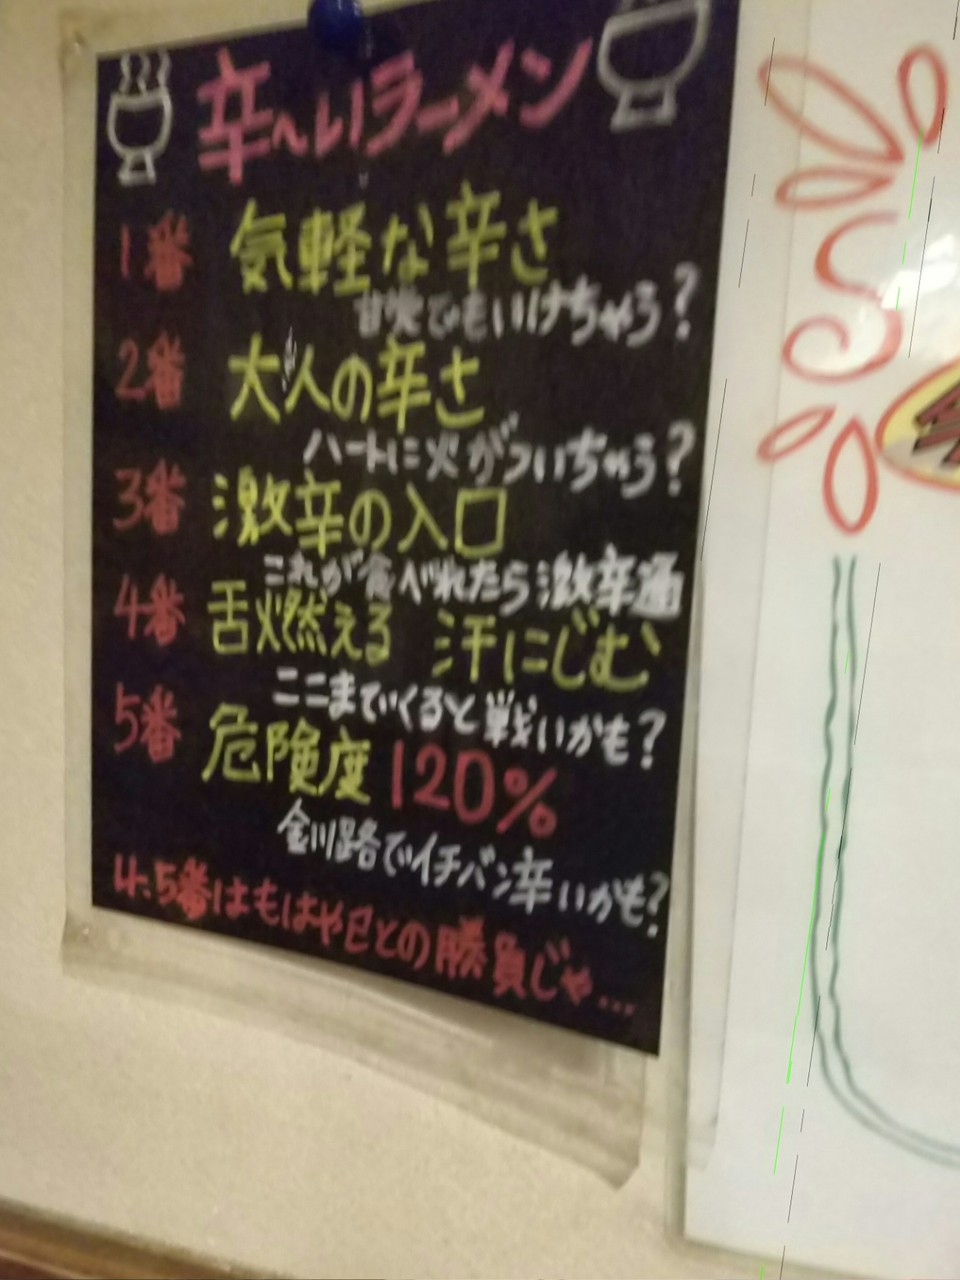 辛〜いラーメン
1番 気軽な辛さ
甘党でもいけちゃう？
2番 大人の辛さ
ハートに火がついちゃう？
3番 激辛の入口
これが食べれたら激辛通
4番 舌燃える 汗にじむ
ここまでくると戦いかも？
5番 危険度120%
金川路でイチバン辛いかも？
4.5番はもはや己との勝負じゃ…